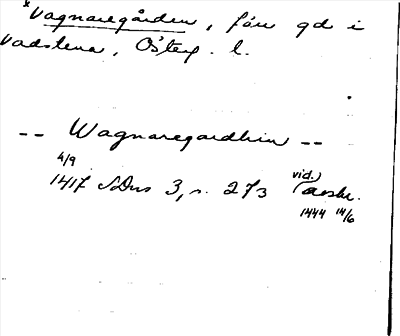 *Vagnaregården, förr gd i
Vadstena, Österg. l.
-- Wagnaregardhin --
4/9
1417 SDns 3, s. 273 (vid.) avskr.
1444 14/6